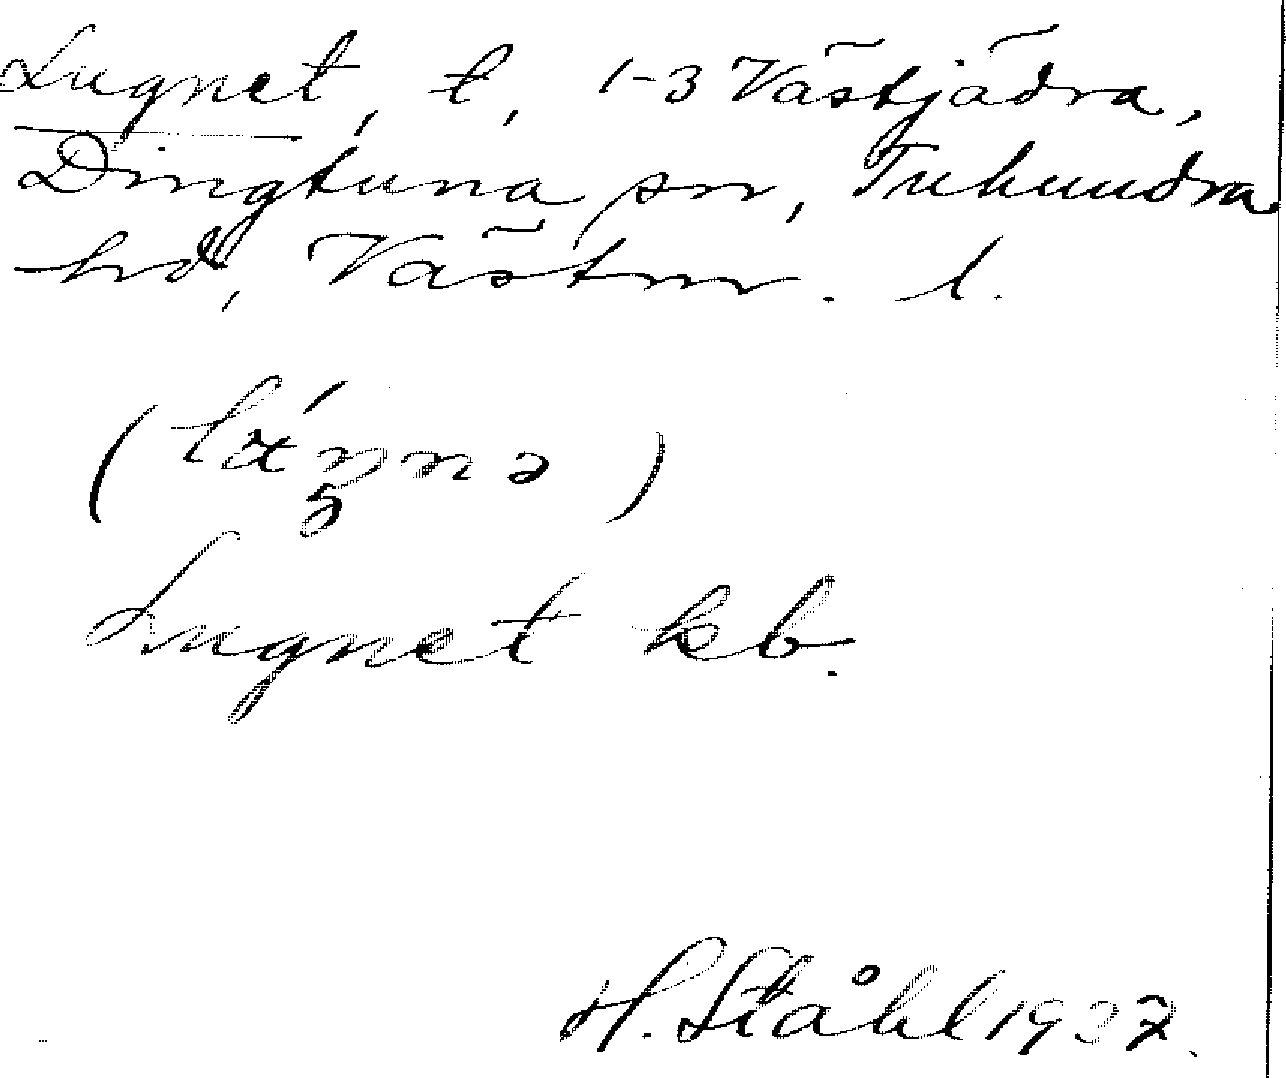 Lugnet, t, 1-3 Västjädra,
Dingtuna sn, Tuhundra
hd, Västm. l.
Lugnet kb.
H. Ståhl 1937.